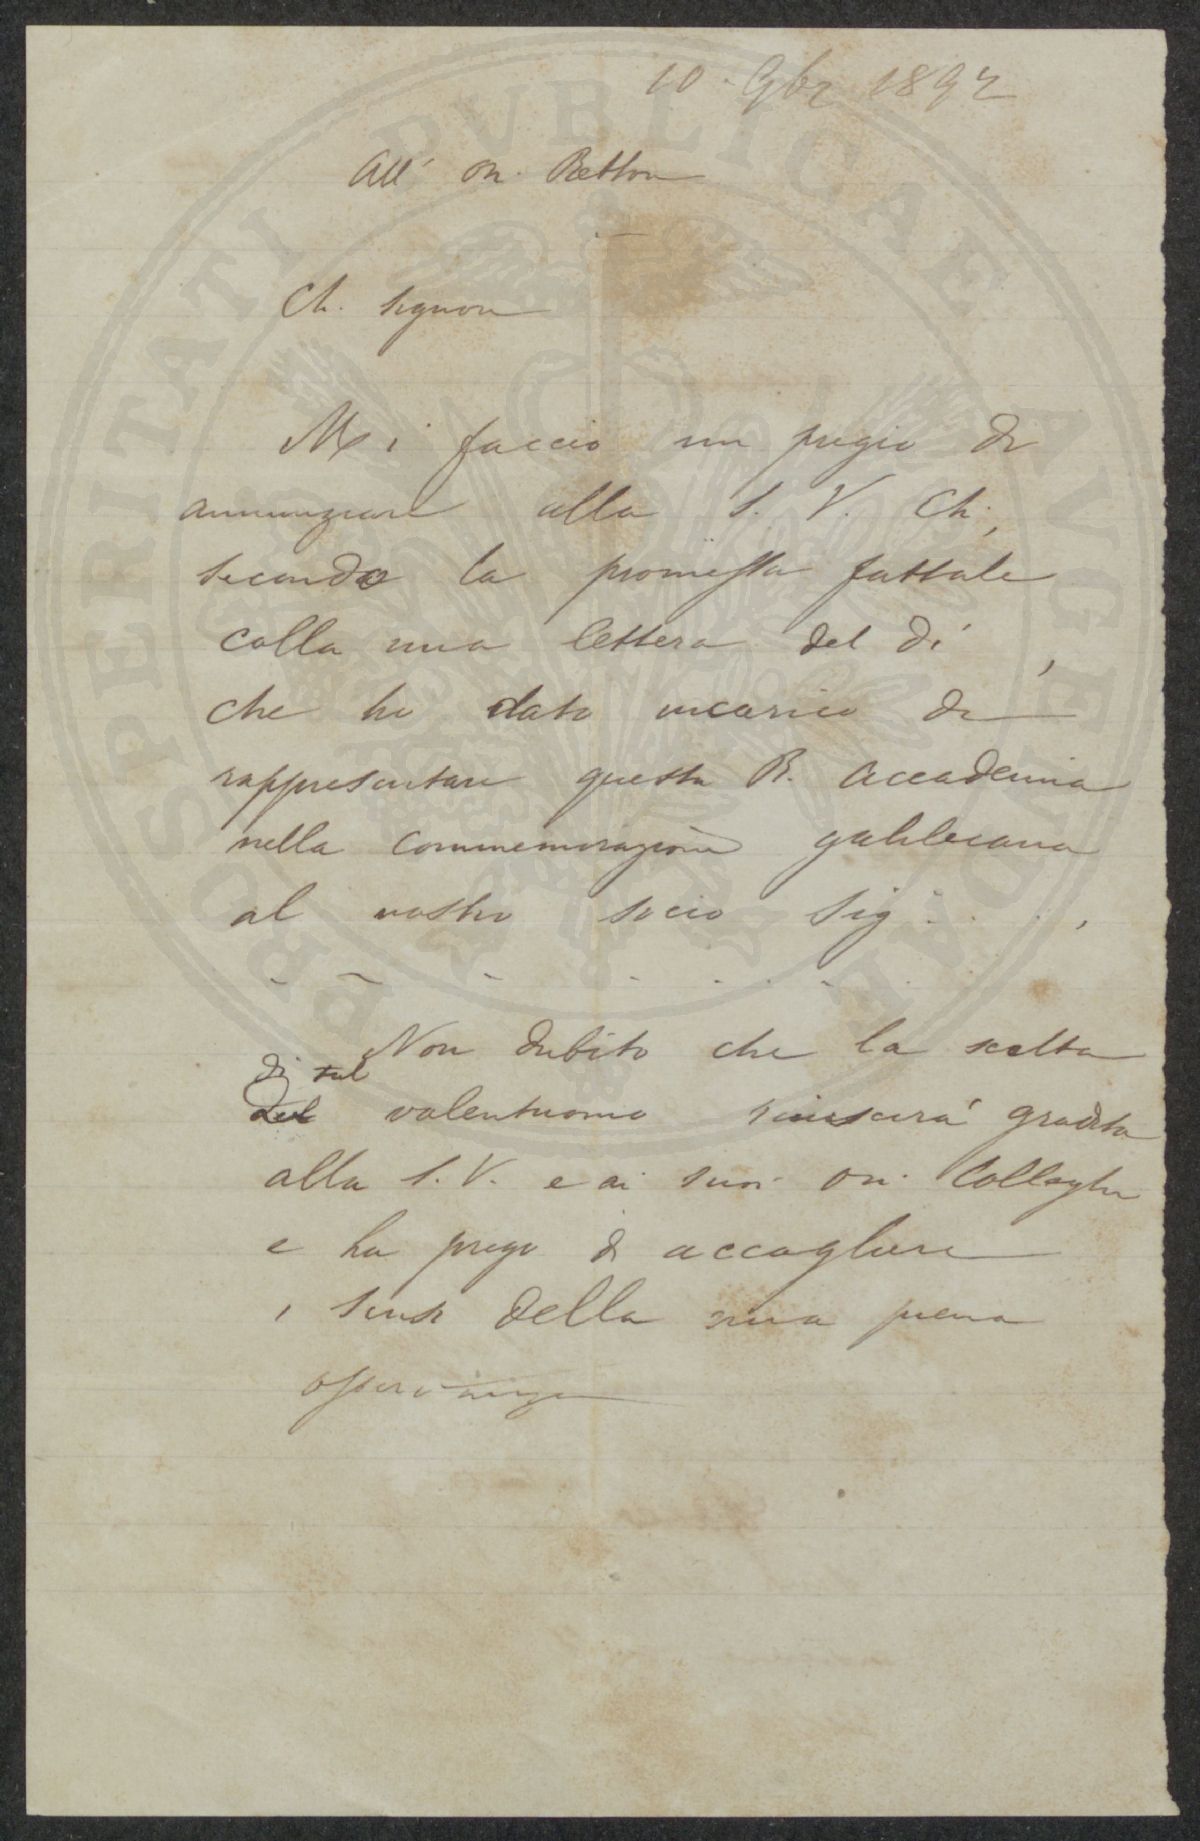 10 9br 1892
All' on. Rettore
Ch. Signore
Mi faccio un pregio di
annunziare alla S. V. Ch.,
secondo la promessa fattale
colla mia lettera del dì ,
che ho dato incarico di
rappresentare questa R. Accademia
nella commemorazione galileiana
al nostro socio Sig . . . . ,
- - - - - . . - .
Non dubito che la scelta
di tal
del valentuomo riuscirà gradita
alla S. V. e ai suoi on. Colleghi
e la prego di accogliere
i sensi della mia piena
osservanza
PROSPERITATI PVBLICAE AVGENDAE